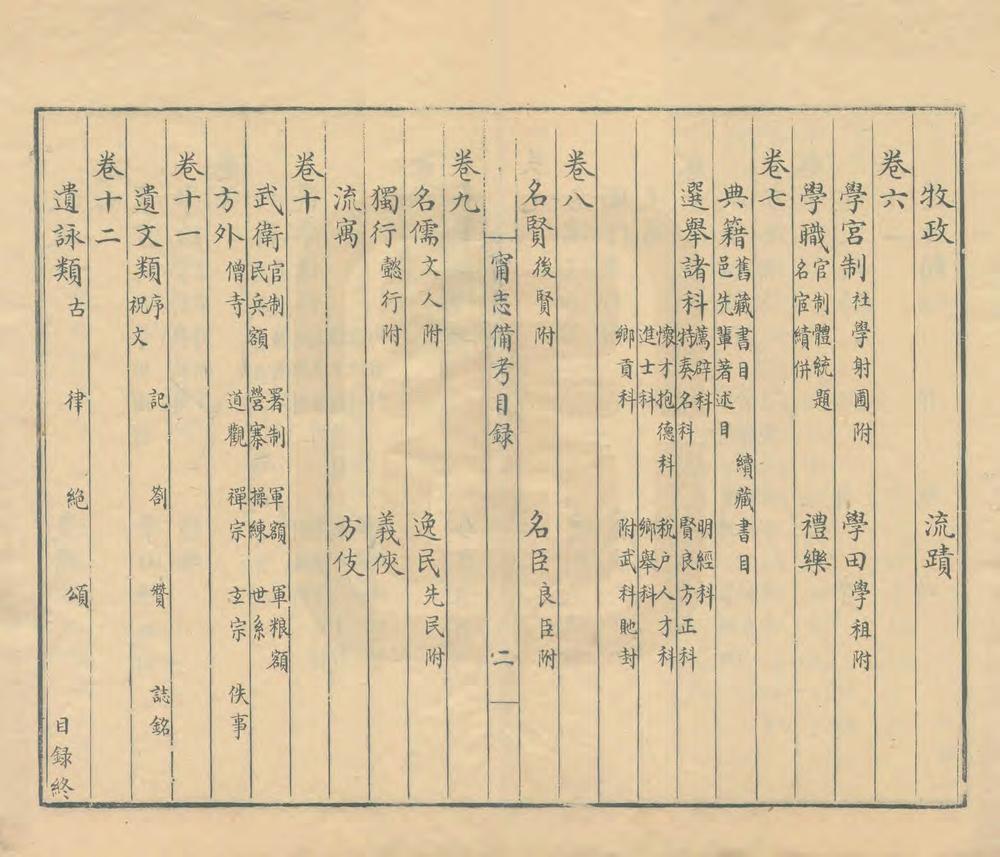 牧政 流蹟
卷六
學宮制社學射圃附 學田學租附
學職官制體統題名宦績併 禮樂
卷七
典籍舊藏書目 續藏書目 邑先輩著述目
選舉諸科薦辟科 明經科 特奏名科 賢良方正科
懷才抱德科 稅戶人才科 進士科 鄉舉科
鄉貢科 附武科貤封
卷八
名賢後賢附 名臣良臣附
甯志備考目録 二
卷九
名儒文人附 逸民先民附
獨行懿行附 義俠
流寓 方伎
卷十
武衛官制 署制 軍額 軍粮額 民兵額 營寨 操練 世系
方外僧寺 道觀 禪宗 玄宗 佚事
卷十一
遺文類序 記 劄 贊 誌銘 祝文
卷十二
遺詠類古 律 絕 頌 目録終